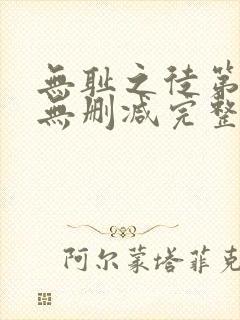 無耻之徒第
無删减完整
阿尔蒙塔菲克